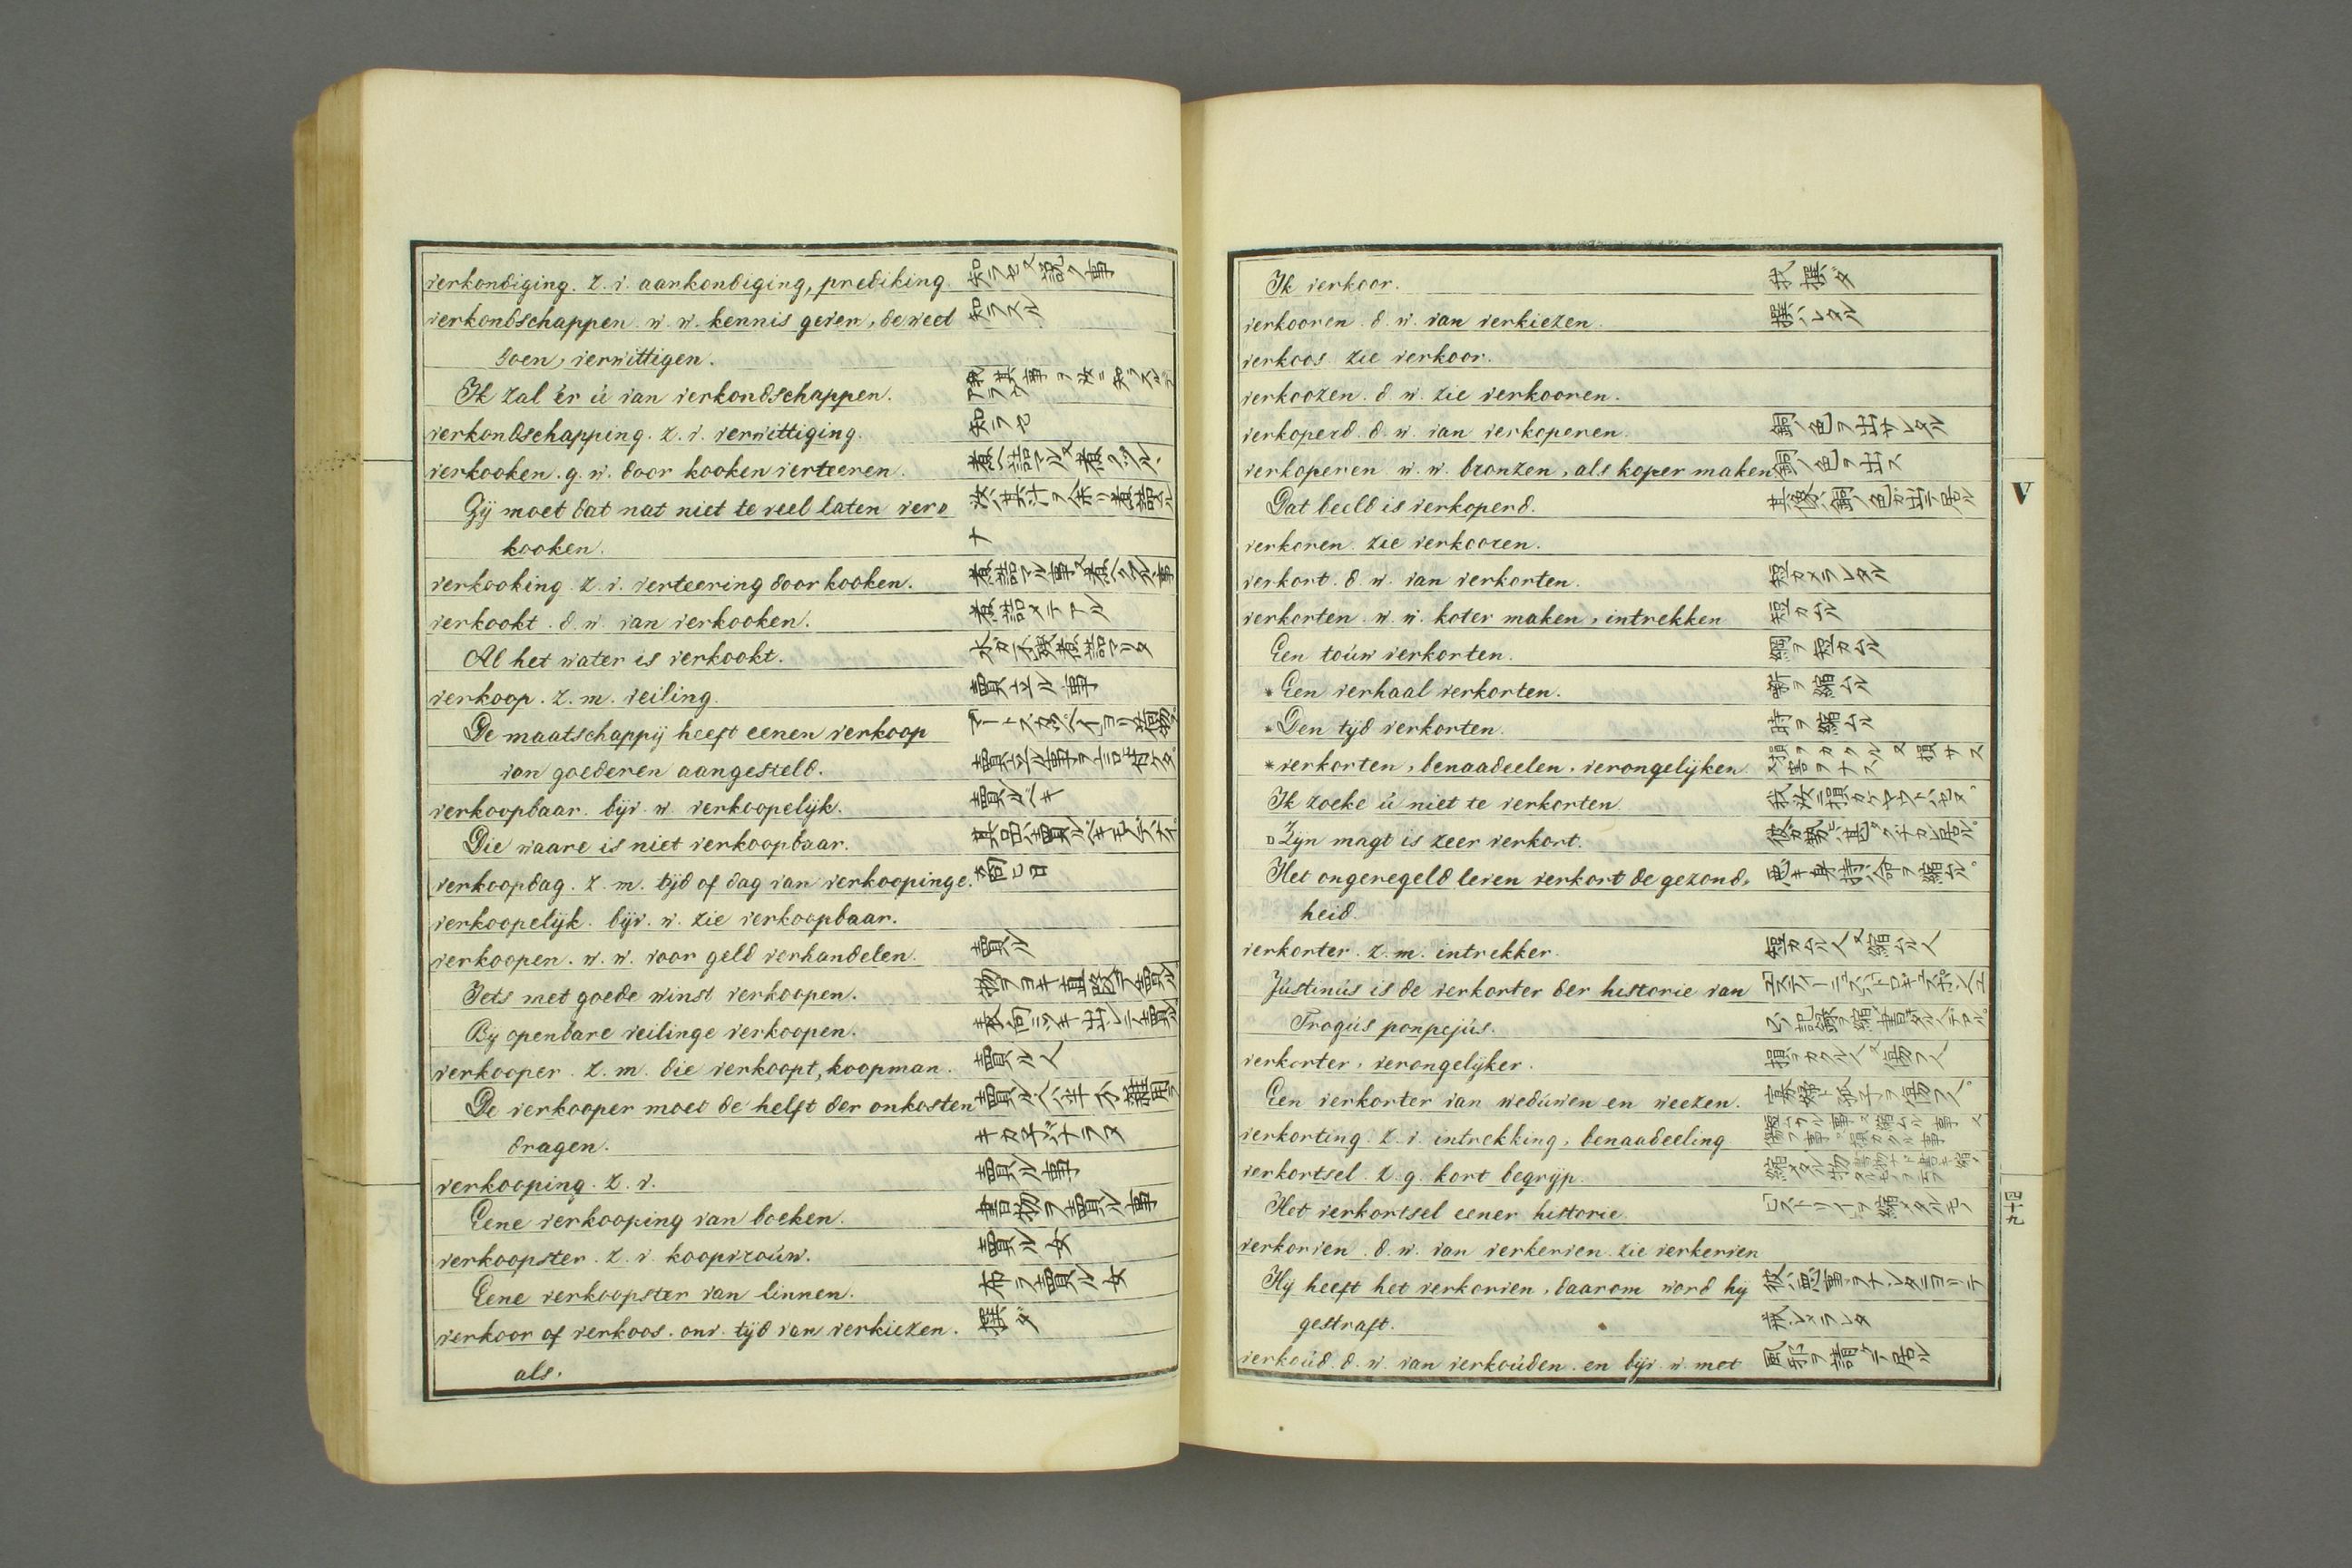 verkondiging. z. v. aankondiging, prediking. 知ラセ又説ク事
verkondschappen. w. w. kennis geven, de weet 知ラスル
doen, verwittigen.
Ik zal ér ú van verkondschappen.
verkondschapping. z. v. verwittiging. 知ラセ
verkooken. g. w. door kooken verteeren.
Gij moet dat nat niet te veel laten ver=
kooken. ナ
verkooking. z. v. verteering door kooken.
verkookt. d. w. van verkooken. 煮詰メテアル
Al het water is verkookt. 水ガ不残煮詰マリタ
verkoop. z. m. veiling. 賣立ル事
De maatschappij heeft eenen verkoop
van goederen aangesteld. 賣立ル事ヲ言付ケタ
verkoopbaar. bijv. w. verkoopelijk. 賣ルベキ
Die waare is niet verkoopbaar.
verkoopdag. z. m. tijd of dag van verkoopinge. 商ヒ日
verkoopelijk. bijv. w. zie verkoopbaar.
verkoopen. w. w. voor geld verhandelen. 賣ル
Iets met goede winst verkoopen. 物ヲヨキ直段デ賣ル
Bij openbare veilinge verkoopen. 表向ニツキ出シテ賣ル
verkooper. z. m. die verkoopt, koopman. 賣ル人
De verkooper moet de helft der onkosten 賣ル人ハ半分雑用ヲ
dragen. キカ子バナラヌ
verkooping. z. v. 賣ル事
Eene verkooping van boeken. 書物ヲ賣ル事
verkoopster. z. v. koopvroúw. 賣ル女
Eene verkoopster van linnen. 布ヲ賣ル女
verkoor of verkoos. onv. tijd van verkiezen. 撰ダ
als.
Ik verkoor. 我撰ダ
verkooren. d. w. van verkiezen. 撰ハレタル
verkoos. zie verkoor.
verkoozen. d. w. zie verkooren.
verkoperd. d. w. van verkoperen. 銅ノ色ヲ出サレタル
verkoperen. w. w. bronzen, als koper maken. 銅ノ色ヲ出ス
Dat beeld is verkoperd. 其像ハ銅ノ色ガ出テ居ル
verkoren. zie verkoozen.
verkort. d. w. van verkorten. 短カメラレタル
verkorten. w. w. koter maken, intrekken 短カムル
Een toúw verkorten. 綱ヲ短カムル
* Een verhaal verkorten. 噺ヲ縮ムル
* Den tijd verkorten. 時ヲ縮ムル
* verkorten, benaadeelen, verongelijken.
Ik zoeke ú niet te verkorten.
Zijn magt is zeer verkort.
Het ongeregeld leven verkort de gezond= 悪キ身持ハ命ヲ縮ル
heid.
verkorter. z. m. intrekker. 短カムル人又縮ムル人
Jústinús is de verkorter der historie van
Trogús ponpejús.
verkorter, verongelijker. 損ヲカクル人又傷フ人
Een verkorter van wedúwen en weezen. 寡婦ト孤子ヲ傷フ人
verkorting. z. v. intrekking, benaadeeling
verkortsel. z. g. kort begrijp. 縮メタル物
Het verkortsel eener historie. ヒストリイヲ縮メタルモノ
verkorven. d. w. van verkerven. zie verkerven
Hij heeft het verkorven, daarom word hij 彼ハ悪事ヲナシタニヨリテ
gestraft.
verkoúd. d. w. van verkoúden. en bijv. w. met 風邪ヲ請ケテ居ル
V
四十九